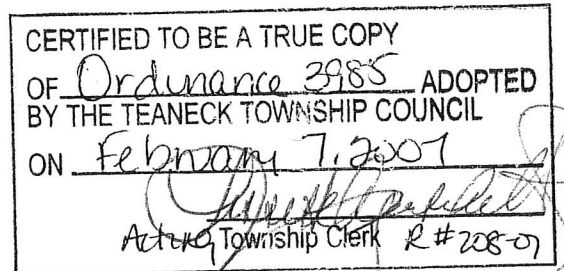 CERTIFIED TO BE A TRUE COPY
OF Ordinance 3985 ADOPTED
BY THE TEANECK TOWNSHIP COUNCIL
ON February 7, 2007
Acting Township Clerk R#208-07